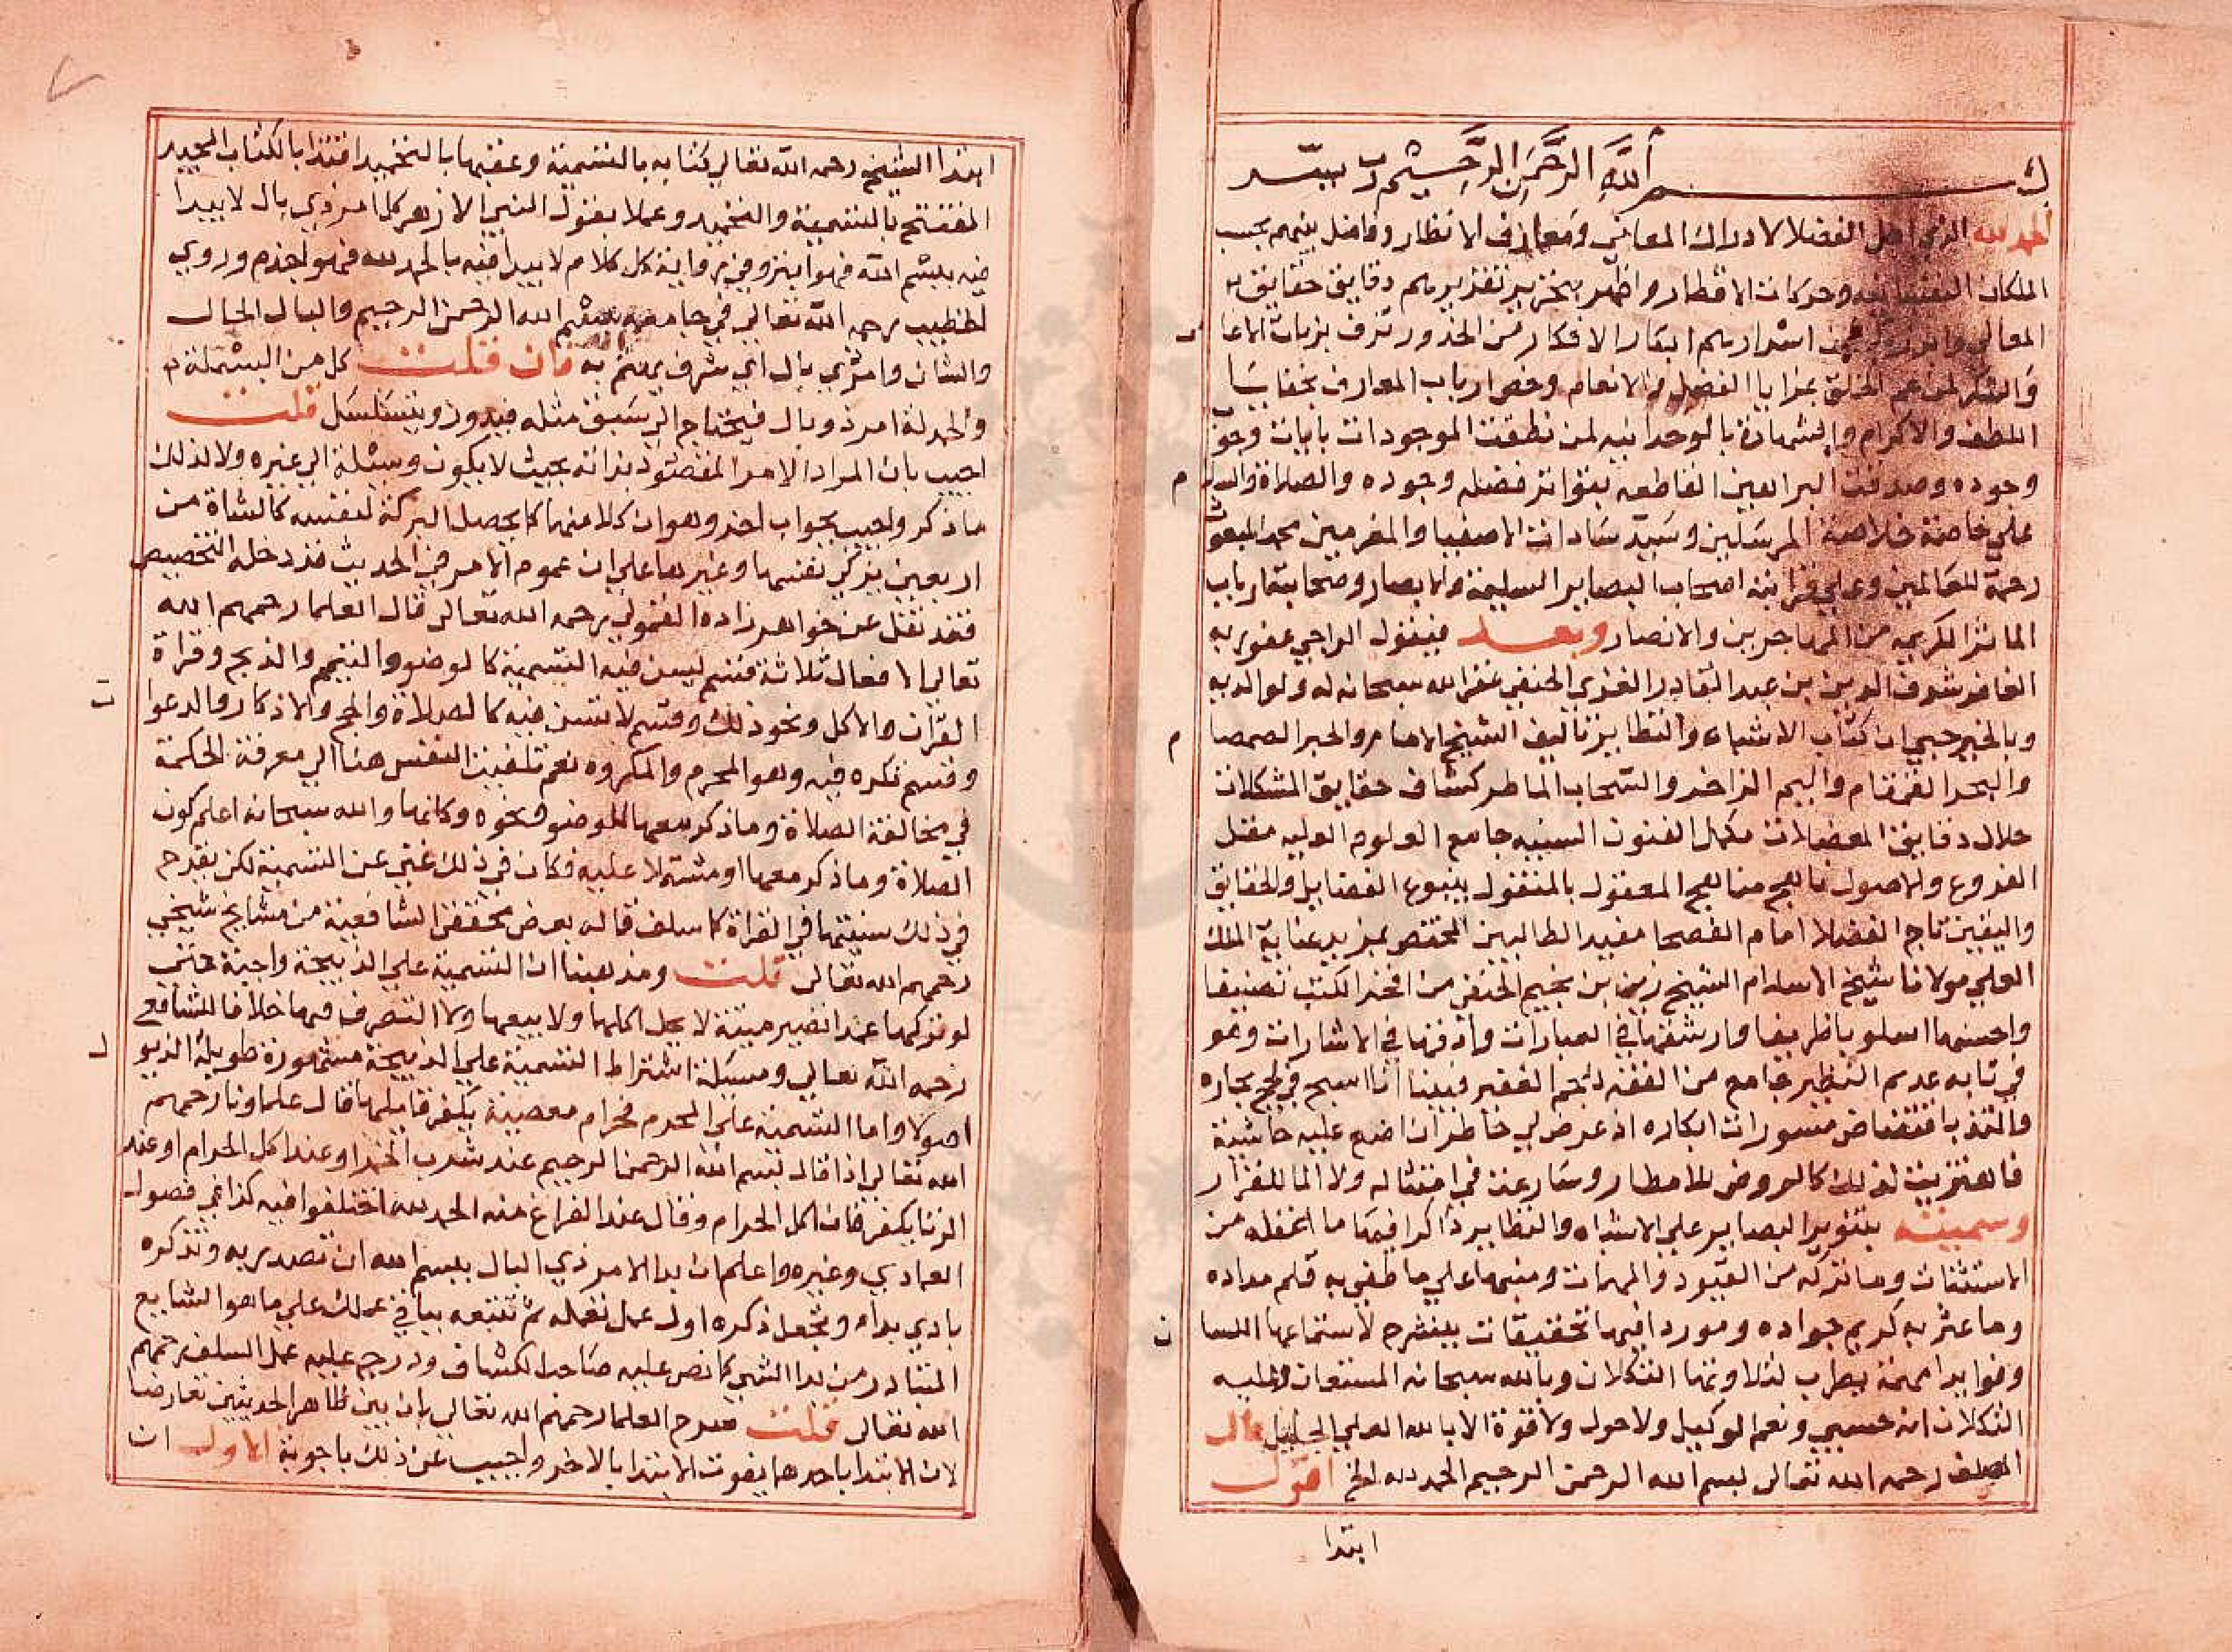 بسم الله الرحمن الرحيم رب يسر
الحمد لله الذي اهل الفضلا لادراك المعاني ومعارف الانظار وفاضل بينهم بحسب
الملكات النفسانيه وحركات الافكار واظهر بتحرير تقديرهم دقايق حقايق
المعالي وابرز من اسرارهم ابكار الافكار من الخدور تزف بزيات الاعا
والشكر لمن عم الخلق بمزايا الفضل والانعام وخص ارباب المعارف بخفايا
اللطف والاكرام والشهادة بالوحدانيه لمن نطقت الموجودات بايات وجو
وجوده وصدقت البراهين القاطعه بتواتر فضله وجوده والصلاة والسلام
علي خاصة خلاصة المرسلين وسيد سادات الاصفيا والمقربين محمد المبعوث
رحمة للعالمين وعلي قرابته اصحاب البصاير السليمة والابصار وصحابته ارباب
الماثر الكريمه من المهاجرين والانصار وبعد فيقول الراجي عفو ربه
الغافر شرف الدين بن عبد القادر الغزي الحنفي غفر الله سبحانه له ولوالديه
وبالخير حبي ان كتاب الاشباه والنظاير تاليف الشيخ الامام والحبر الصمصا م
والبحر القمقام واليم الزاخر والسحاب الماطر كشاف حقايق المشكلات
حلال دقايق المعضلات مكمل الفنون السنيه جامع العلوم العليه مفتل
الفروع والاصول ناهج مناهج المعقول بالمنقول ينبوع الفضايل والحقايق
واليقين تاج الفضلا امام الفصحا مفيد الطالبين المختص بمزيد عناية الملك
العلي مولانا شيخ الاسلام الشيخ زين بن نجيم الحنفي من افخر الكتب تصنيفا
واحسنها اسلوبا ظريفا وارشقها في العبارات وادقها في الاشارات وهو
في بابه عديم النظير جامع من الفقه الجم الغفير فبينا انا اسبح في لجج بحاره
والتذ باقتضاض مسورات ابكاره اذ عرض لي خاطر ان اضع عليه حاشية
فاهتزيت لذلك كالروض للامطار وسارعت في امتثاله ولا الما للقرار
وسميته بتنوير البصاير علي الاشباه والنظاير ذاكرا فيها ما اغفله من
الاستثنات وما تركه من القيود والمهمات ومنبها علي ما طغي به قلم مداده
وما عثر به كريم جواده وموردا فيها تحقيقات ينشرح لاستماعها اللسا ن
وفوايد مهمة يطرب لتلاوتها الثكلان وبالله سبحانه المستعان وعليه
التكلان انه حسبي ونعم الوكيل ولا حول ولا قوة الا بالله العلي الجليل قال
المصنف رحمه الله تعالى بسم الله الرحمن الرحيم الحمد لله الخ اقول
ابتدا
ابتدا الشيخ رحمه الله تعالي كتابه بالتسمية وعقبها بالتحميد اقتدا بالكتاب المجيد
المفتتح بالتسمية والتحميد وعملا بقول النبي الازهر كل امر ذي بال لا يبدا
فيه ببسم الله فهو ابتر وفي رواية كل كلام لا يبدا فيه بالحمد لله فهو اجذم وروي
الخطيب رحمه الله تعالي في جامعه ببسم الله الرحمن الرحيم والبال الحال
والشان وامر ذي بال اي شرف يهتم به فان قلت كل من البسملة
والحمدلة امر ذو بال فيحتاج الي سبق مثله فيدور ويتسلسل قلت
اجيب بان المراد الامر المقصود بذاته بحيث لا يكون وسيلة الي غيره ولا لذلك
ماذكر واجيب بجواب اخر وهو ان كلا منها كما يحصل البركة لنفسه كالشاة من
اربعين يزكي نفسها وغيرها علي ان عموم الامر في الحديث قد دخله التخصيص
فقد نقل عن خواهر زاده القمولي رحمه الله تعالي قال العلما رحمهم الله
تعالي الافعال ثلاثة قسم يسن فيه التسمية كالوضو والتيمم والذبح وقراة
القران والاكل ونحو ذلك وقسم لا تسن فيه كالصلاة والحج والاذكار والدعوا ت
وقسم تكره فيه وهو المحرم والمكروه نعم تلفتت النفس هنا الي معرفة الحكمة
في مخالفة الصلاة وماذكر معها للوضو ونحوه وكانها والله سبحانه اعلم كون
الصلاة وماذكر معها او مشتملا عليه فكان في ذلك غني عن التسمية لكن يقدح
في ذلك سنيتها في القراة كما سلف قاله بعض محققي الشافعية من مشايخ شيخي
رحمهم الله تعالى قلت ومذهبنا ان التسمية علي الذبيحة واجبة حتي
لو تركها عمدا تصير ميتة لا يحل اكلها ولا بيعها ولا التصرف فيها خلافا للشافعي
رحمه الله تعالي ومسئلة اشتراط التسمية علي الذبيحة مشهورة طويلة الذيو ل
اصولا واما التسمية علي المحرم فحرام معصية يكفر قايلها قال علماونا رحمهم
الله تعالي اذا قال بسم الله الرحمن الرحيم عند شرب الخمر او عند اكل الحرام او عند
الزنا يكفر فان اكل الحرام وقال عند الفراغ منه الحمد لله اختلفوا فيه كذا في فصول
العمادي وغيره واعلم ان بدا الامر ذي البال ببسم الله ان تصدر به وتذكره
بادي بداه وتجعل ذكره اول عمل تعمله ثم تتبعه بباقي عملك علي ما هو الشايع
المتبادر من بدا الشي كما نص عليه صاحب الكشاف ودرج عليه عمل السلف رحمهم
الله تعالى قلت صرح العلما رحمهم الله تعالي بان بين ظاهر الحديثين تعارضا
لان الابتدا باحدهما يفوت الابتدا بالاخر واجيب عن ذلك باجوبة الاول ان